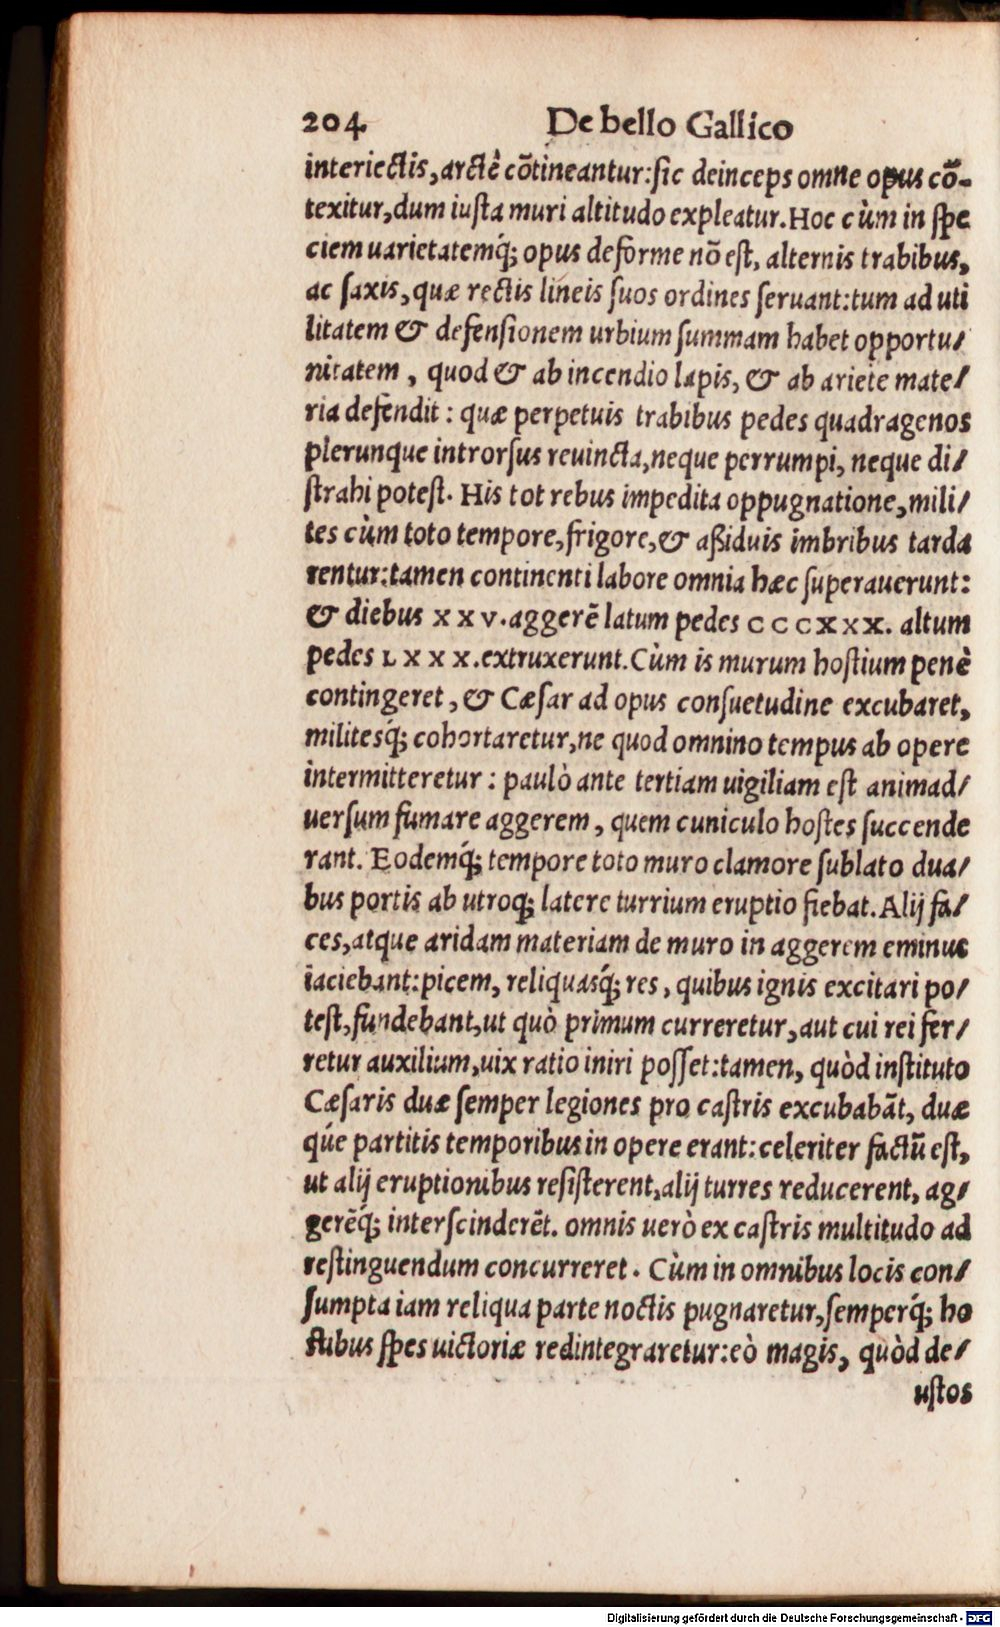 204 De bello Gallico
interiectis, arctè cõtineantur: sic deinceps omne opus cõ-
texitur, dum iusta muri altitudo expleatur. Hoc cùm in spe
ciem uarietatemq́; opus deforme nõ est, alternis trabibus,
ac saxis, quæ rectis lineis suos ordines seruant: tum ad uti
litatem & defensionem urbium summam habet opportu/
nitatem, quod & ab incendio lapis, & ab ariete mate/
ria defendit: quæ perpetuis trabibus pedes quadragenos
plerunque introrsus reuincta, neque perrumpi, neque di/
strahi potest. His tot rebus impedita oppugnatione, mili/
tes cùm toto tempore, frigore, & aßiduis imbribus tarda
rentur: tamen continenti labore omnia hæc superauerunt:
& diebus XXV. aggerẽ latum pedes CCCXXX. altum
pedes LXXX. extruxerunt. Cùm is murum hostium penè
contingeret, & Cæsar ad opus consuetudine excubaret,
militesq́; cohortaretur, ne quod omnino tempus ab opere
intermitteretur: paulò ante tertiam uigiliam est animad/
uersum fumare aggerem, quem cuniculo hostes succende
rant. Eodemq́; tempore toto muro clamore sublato dua/
bus portis ab utroq; latere turrium eruptio fiebat. Alij fa/
ces, atque aridam materiam de muro in aggerem eminus
iaciebant: picem, reliquasq́; res, quibus ignis excitari po/
test, fundebant, ut quò primum curreretur, aut cui rei fer/
retur auxilium, uix ratio iniri posset: tamen, quòd instituto
Cæsaris duæ semper legiones pro castris excubabãt, duæ
qúe partitis temporibus in opere erant: celeriter factũ est,
ut alij eruptionibus resisterent, alij turres reducerent, ag/
gerẽq́; interscinderẽt. omnis uerò ex castris multitudo ad
restinguendum concurreret. Cùm in omnibus locis con/
sumpta iam reliqua parte noctis pugnaretur, semperq́; ho
stibus spes uictoriæ redintegraretur: eò magis, quòd de/
ustos
Digitalisierung gefördert durch die Deutsche Forschungsgemeinschaft - DFG